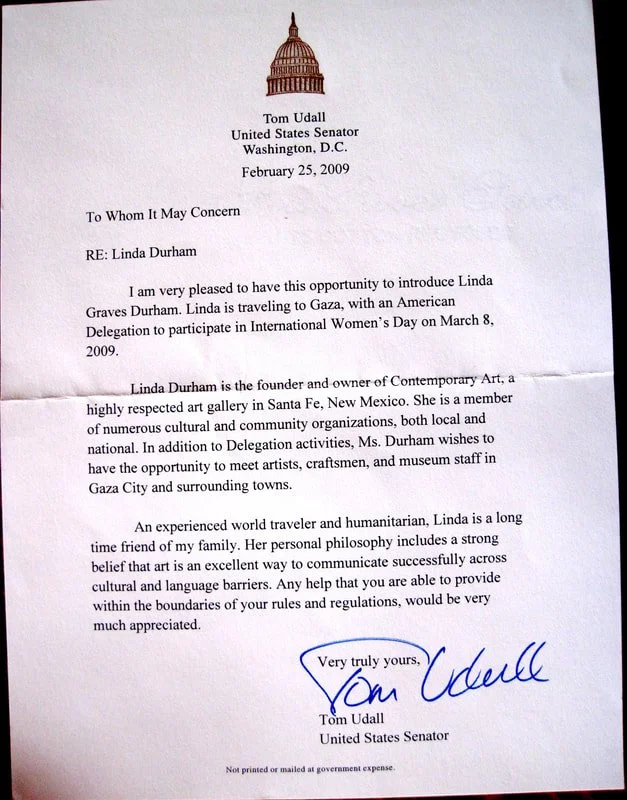 Tom Udall
United States Senator
Washington, D.C.
February 25, 2009
To Whom It May Concern
RE: Linda Durham
I am very pleased to have this opportunity to introduce Linda
Graves Durham. Linda is traveling to Gaza, with an American
Delegation to participate in International Women's Day on March 8,
2009.
Linda Durham is the founder and owner of Contemporary Art, a
highly respected art gallery in Santa Fe, New Mexico. She is a member
of numerous cultural and community organizations, both local and
national. In addition to Delegation activities, Ms. Durham wishes to
have the opportunity to meet artists, craftsmen, and museum staff in
Gaza City and surrounding towns.
An experienced world traveler and humanitarian, Linda is a long
time friend of my family. Her personal philosophy includes a strong
belief that art is an excellent way to communicate successfully across
cultural and language barriers. Any help that you are able to provide
within the boundaries of your rules and regulations, would be very
much appreciated.
Very truly yours,
Tom Udall
Tom Udall
United States Senator
Not printed or mailed at government expense.